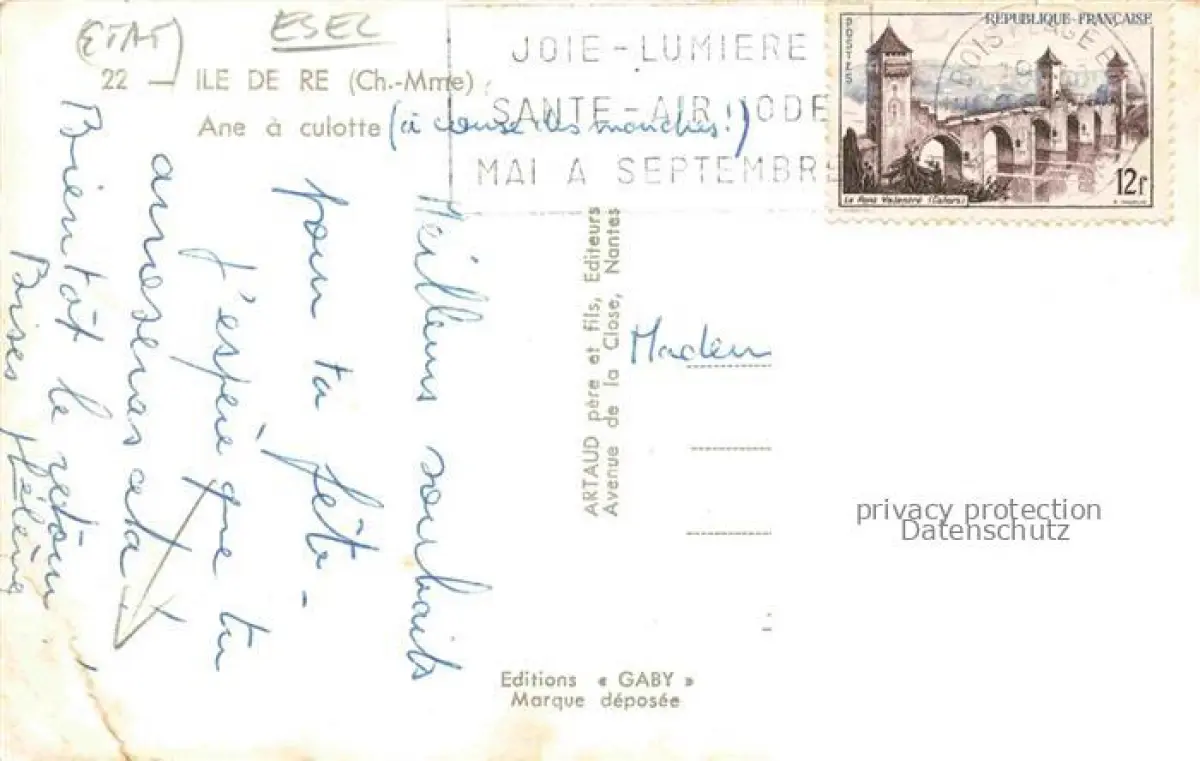 (ETAT)
ESEL
22 — ILE DE RE (Ch.-Mme)
Ane à culotte (à cause des mouches!)
JOIE - LUMIERE
SANTE - AIR IODE
MAI A SEPTEMBRE
POSTES
REPUBLIQUE FRANÇAISE
BOIS PLAGE
Le Pont Valentré (Cahors)
12f
Meilleurs souhaits
pour ta fête -
J'espère que tu
arroseras cela!
Bientôt le
Baises
ARTAUD père et fils, Editeurs
Avenue de la Close, Nantes
Madem
privacy protection
Datenschutz
Editions « GABY »
Marque déposée